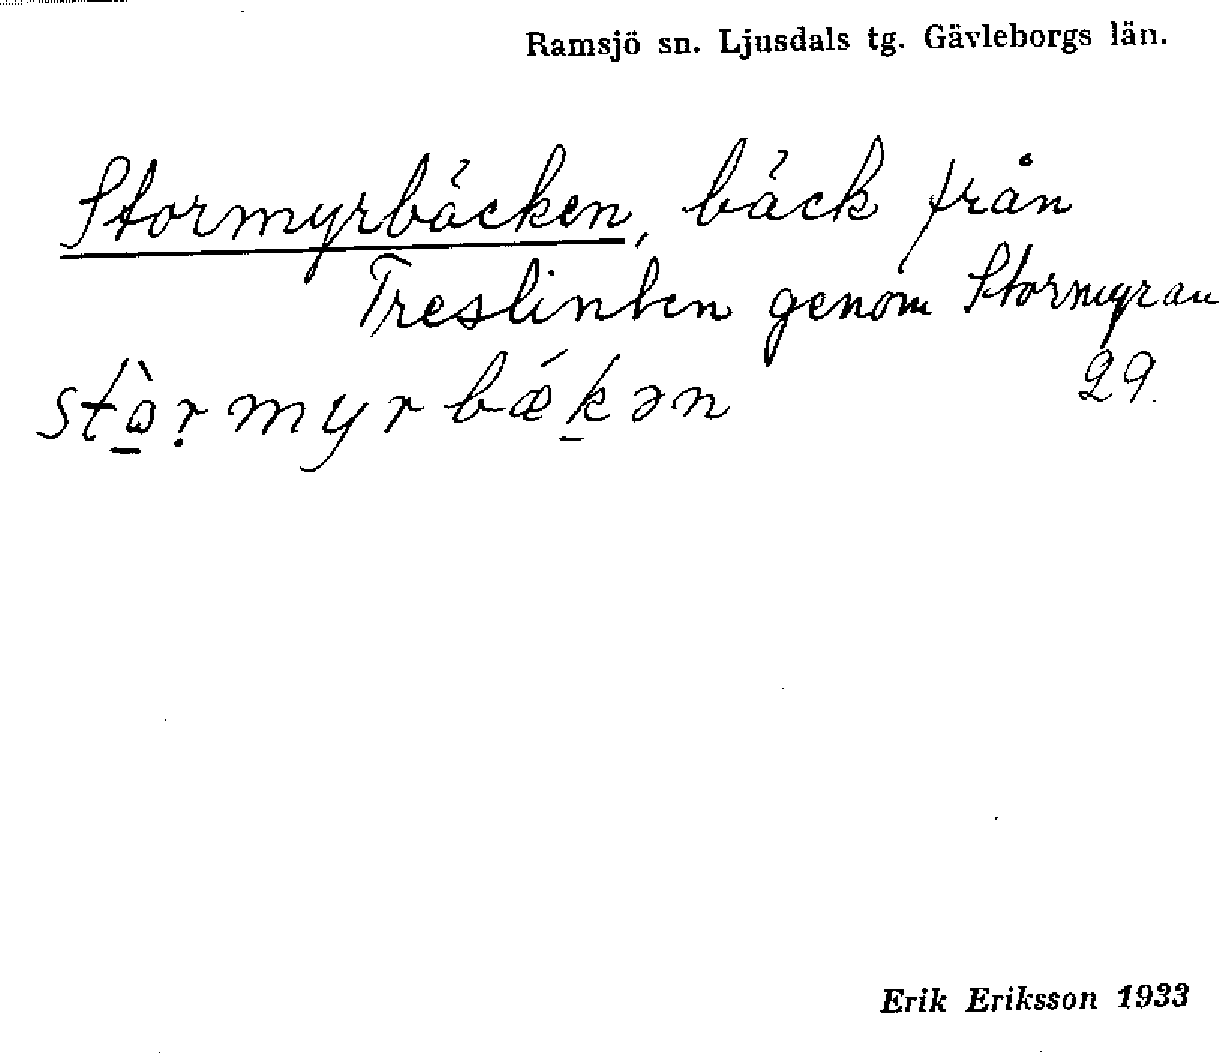 Ramsjö sn. Ljusdals tg. Gävleborgs län.
Stormyrbäcken, bäck från
genom Stormyran
29.
Erik Eriksson 1933